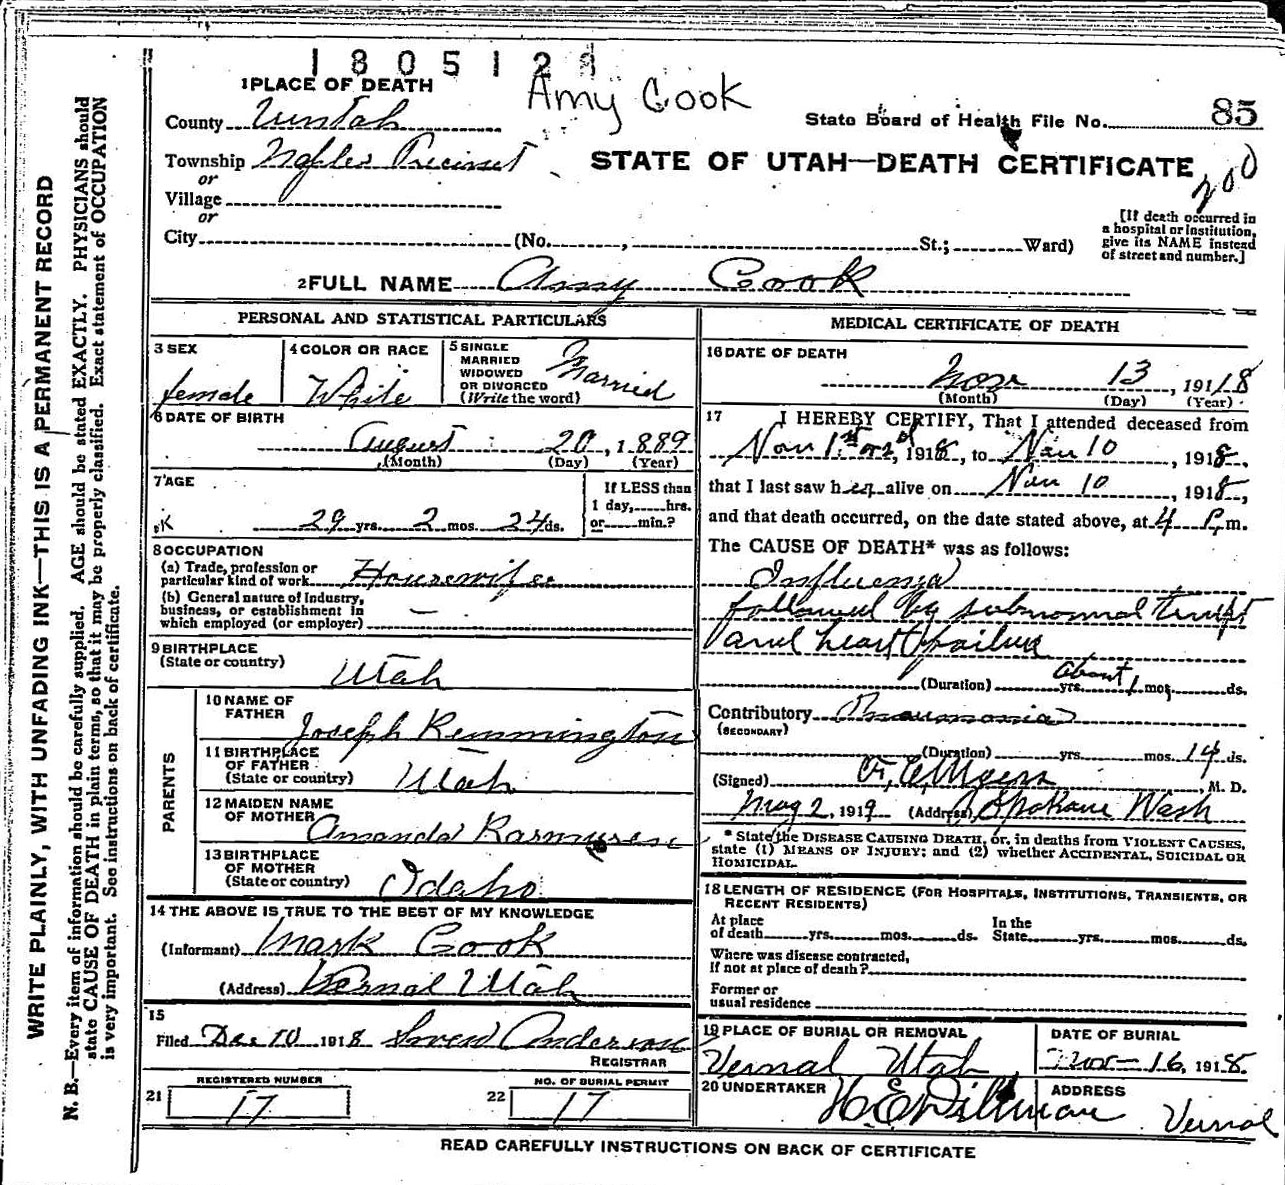 1805129
1 PLACE OF DEATH
Amy Cook
County Uintah
State Board of Health File No. 85
Township Naples Precinct
STATE OF UTAH—DEATH CERTIFICATE
200
or
Village
or
City (No. , St.; Ward)
[If death occurred in
a hospital or institution,
give its NAME instead
of street and number.]
2 FULL NAME Amy Cook
PERSONAL AND STATISTICAL PARTICULARS
3 SEX
female
4 COLOR OR RACE
White
5 SINGLE
MARRIED
WIDOWED
OR DIVORCED
(Write the word)
Married
6 DATE OF BIRTH
August 20, 1889
(Month) (Day) (Year)
7 AGE
29 yrs. 2 mos. 24 ds.
If LESS than
1 day, hrs.
or min.?
8 OCCUPATION
(a) Trade, profession or
particular kind of work Housewife
(b) General nature of Industry,
business, or establishment in
which employed (or employer) —
9 BIRTHPLACE
(State or country)
Utah
PARENTS
10 NAME OF
FATHER
Joseph Remmington
11 BIRTHPLACE
OF FATHER
(State or country) Utah
12 MAIDEN NAME
OF MOTHER
Amanda Rasmussen
13 BIRTHPLACE
OF MOTHER
(State or country) Idaho
14 THE ABOVE IS TRUE TO THE BEST OF MY KNOWLEDGE
(Informant) Mark Cook
(Address) Vernal Utah
15
Filed Dec 10 1918 Soren Anderson
REGISTRAR
REGISTERED NUMBER
21 17
NO. OF BURIAL PERMIT
22 17
MEDICAL CERTIFICATE OF DEATH
16 DATE OF DEATH
Nov 13, 19118
(Month) (Day) (Year)
17 I HEREBY CERTIFY, That I attended deceased from
Nov 1st or 2d, 1918, to Nov 10, 1918,
that I last saw her alive on Nov 10, 1918,
and that death occurred, on the date stated above, at 4 P.m.
The CAUSE OF DEATH* was as follows:
Influenza
followed by subnormal temp
and heart failure
(Duration) yrs. about 1 mos. ds.
Contributory Pneumonia
(SECONDARY)
(Duration) yrs. mos. 14 ds.
(Signed) Myers, M. D.
May 2, 1919 (Address) Spokane Wash
* State the DISEASE CAUSING DEATH, or, in deaths from VIOLENT CAUSES,
state (1) MEANS OF INJURY; and (2) whether ACCIDENTAL, SUICIDAL OR
HOMICIDAL.
18 LENGTH OF RESIDENCE (FOR HOSPITALS, INSTITUTIONS, TRANSIENTS, OR
RECENT RESIDENTS)
At place
of death yrs. mos. ds.
In the
State yrs. mos. ds.
Where was disease contracted,
If not at place of death?
Former or
usual residence
19 PLACE OF BURIAL OR REMOVAL
Vernal Utah
DATE OF BURIAL
Nov 16, 1918.
20 UNDERTAKER
H E Dillman
ADDRESS
Vernal
READ CAREFULLY INSTRUCTIONS ON BACK OF CERTIFICATE
WRITE PLAINLY, WITH UNFADING INK—THIS IS A PERMANENT RECORD
N. B.—Every item of information should be carefully supplied. AGE should be stated EXACTLY. PHYSICIANS should
state CAUSE OF DEATH in plain terms, so that it may be properly classified. Exact statement of OCCUPATION
is very important. See instructions on back of certificate.